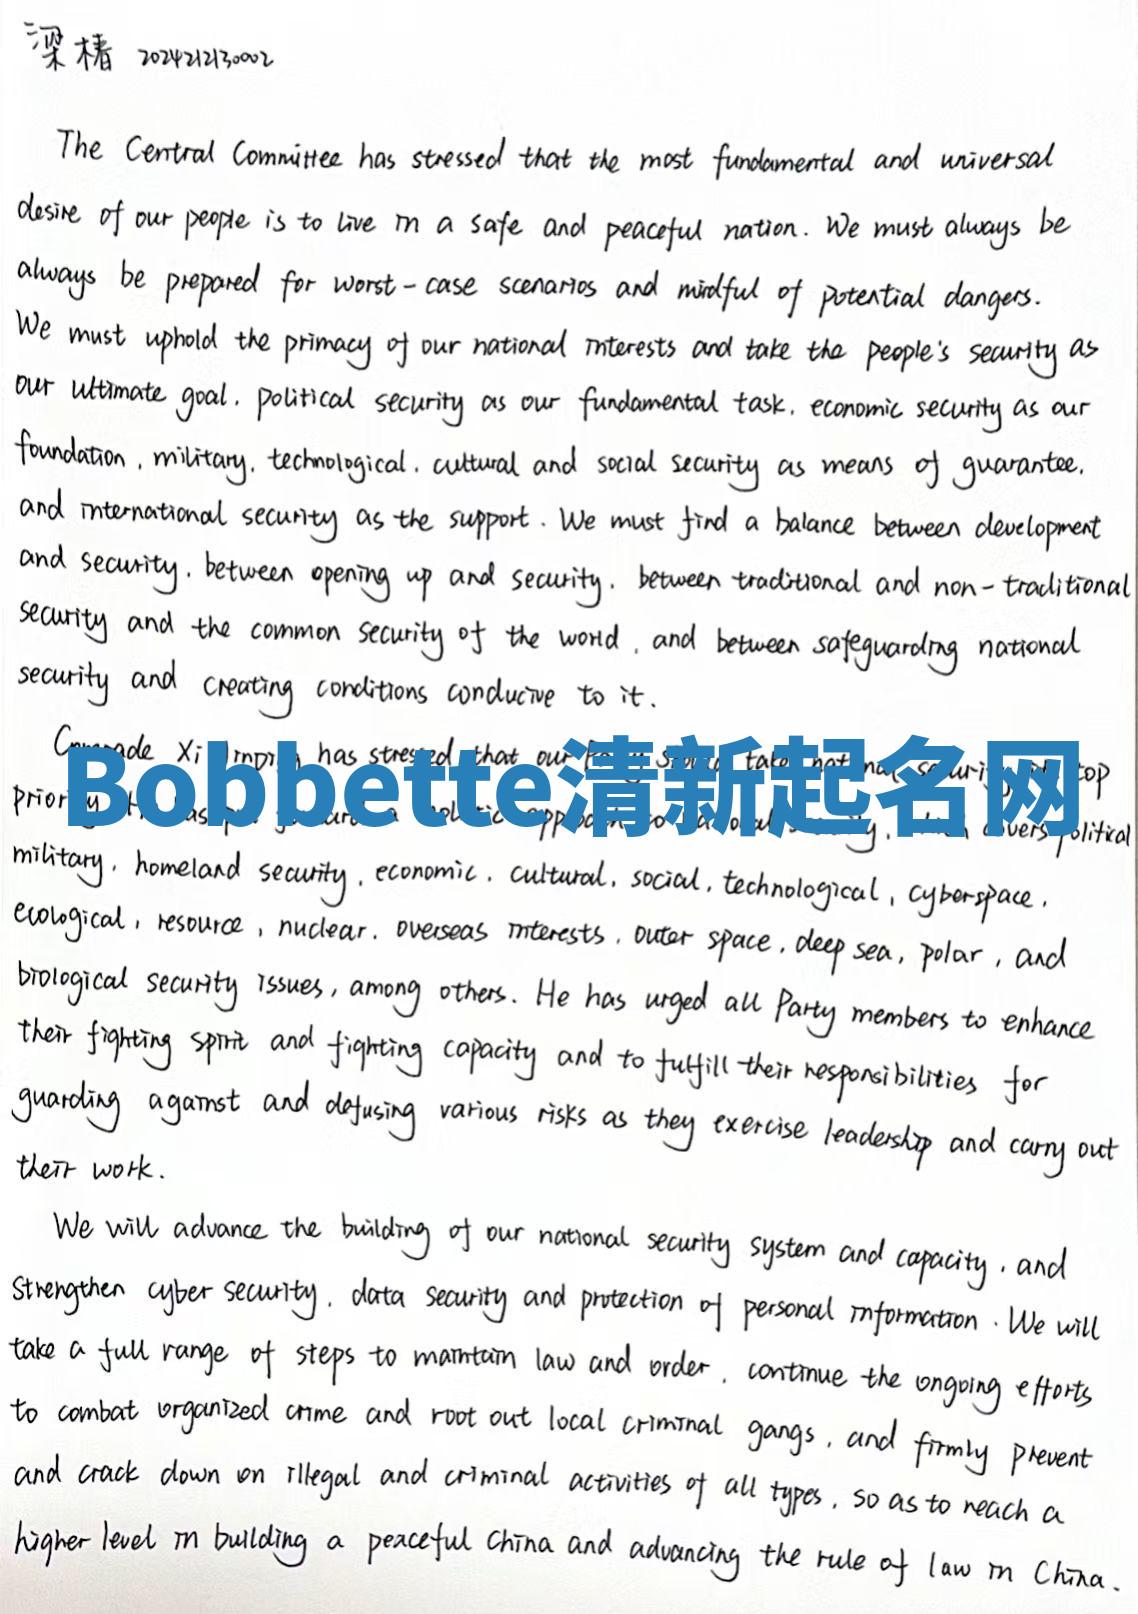 梁椿 2024212130002
The Central Committee has stressed that the most fundamental and universal
desire of our people is to live in a safe and peaceful nation. We must always be
always be prepared for worst-case scenarios and mindful of potential dangers.
We must uphold the primacy of our national interests and take the people's security as
our ultimate goal, political security as our fundamental task, economic security as our
foundation, military, technological, cultural and social security as means of guarantee,
and international security as the support. We must find a balance between development
and security, between opening up and security, between traditional and non-traditional
security and the common security of the world, and between safeguarding national
security and creating conditions conducive to it.
Xi has stressed that our top
Bobbette清新起名网
political
military, homeland security, economic, cultural, social, technological, cyberspace,
ecological, resource, nuclear, overseas interests, outer space, deep sea, polar, and
biological security issues, among others. He has urged all Party members to enhance
their fighting spirit and fighting capacity and to fulfill their responsibilities for
guarding against and defusing various risks as they exercise leadership and carry out
their work.
We will advance the building of our national security system and capacity, and
strengthen cyber security, data security and protection of personal information. We will
take a full range of steps to maintain law and order, continue the ongoing efforts
to combat organized crime and root out local criminal gangs, and firmly prevent
and crack down on illegal and criminal activities of all types, so as to reach a
higher level in building a peaceful China and advancing the rule of law in China.